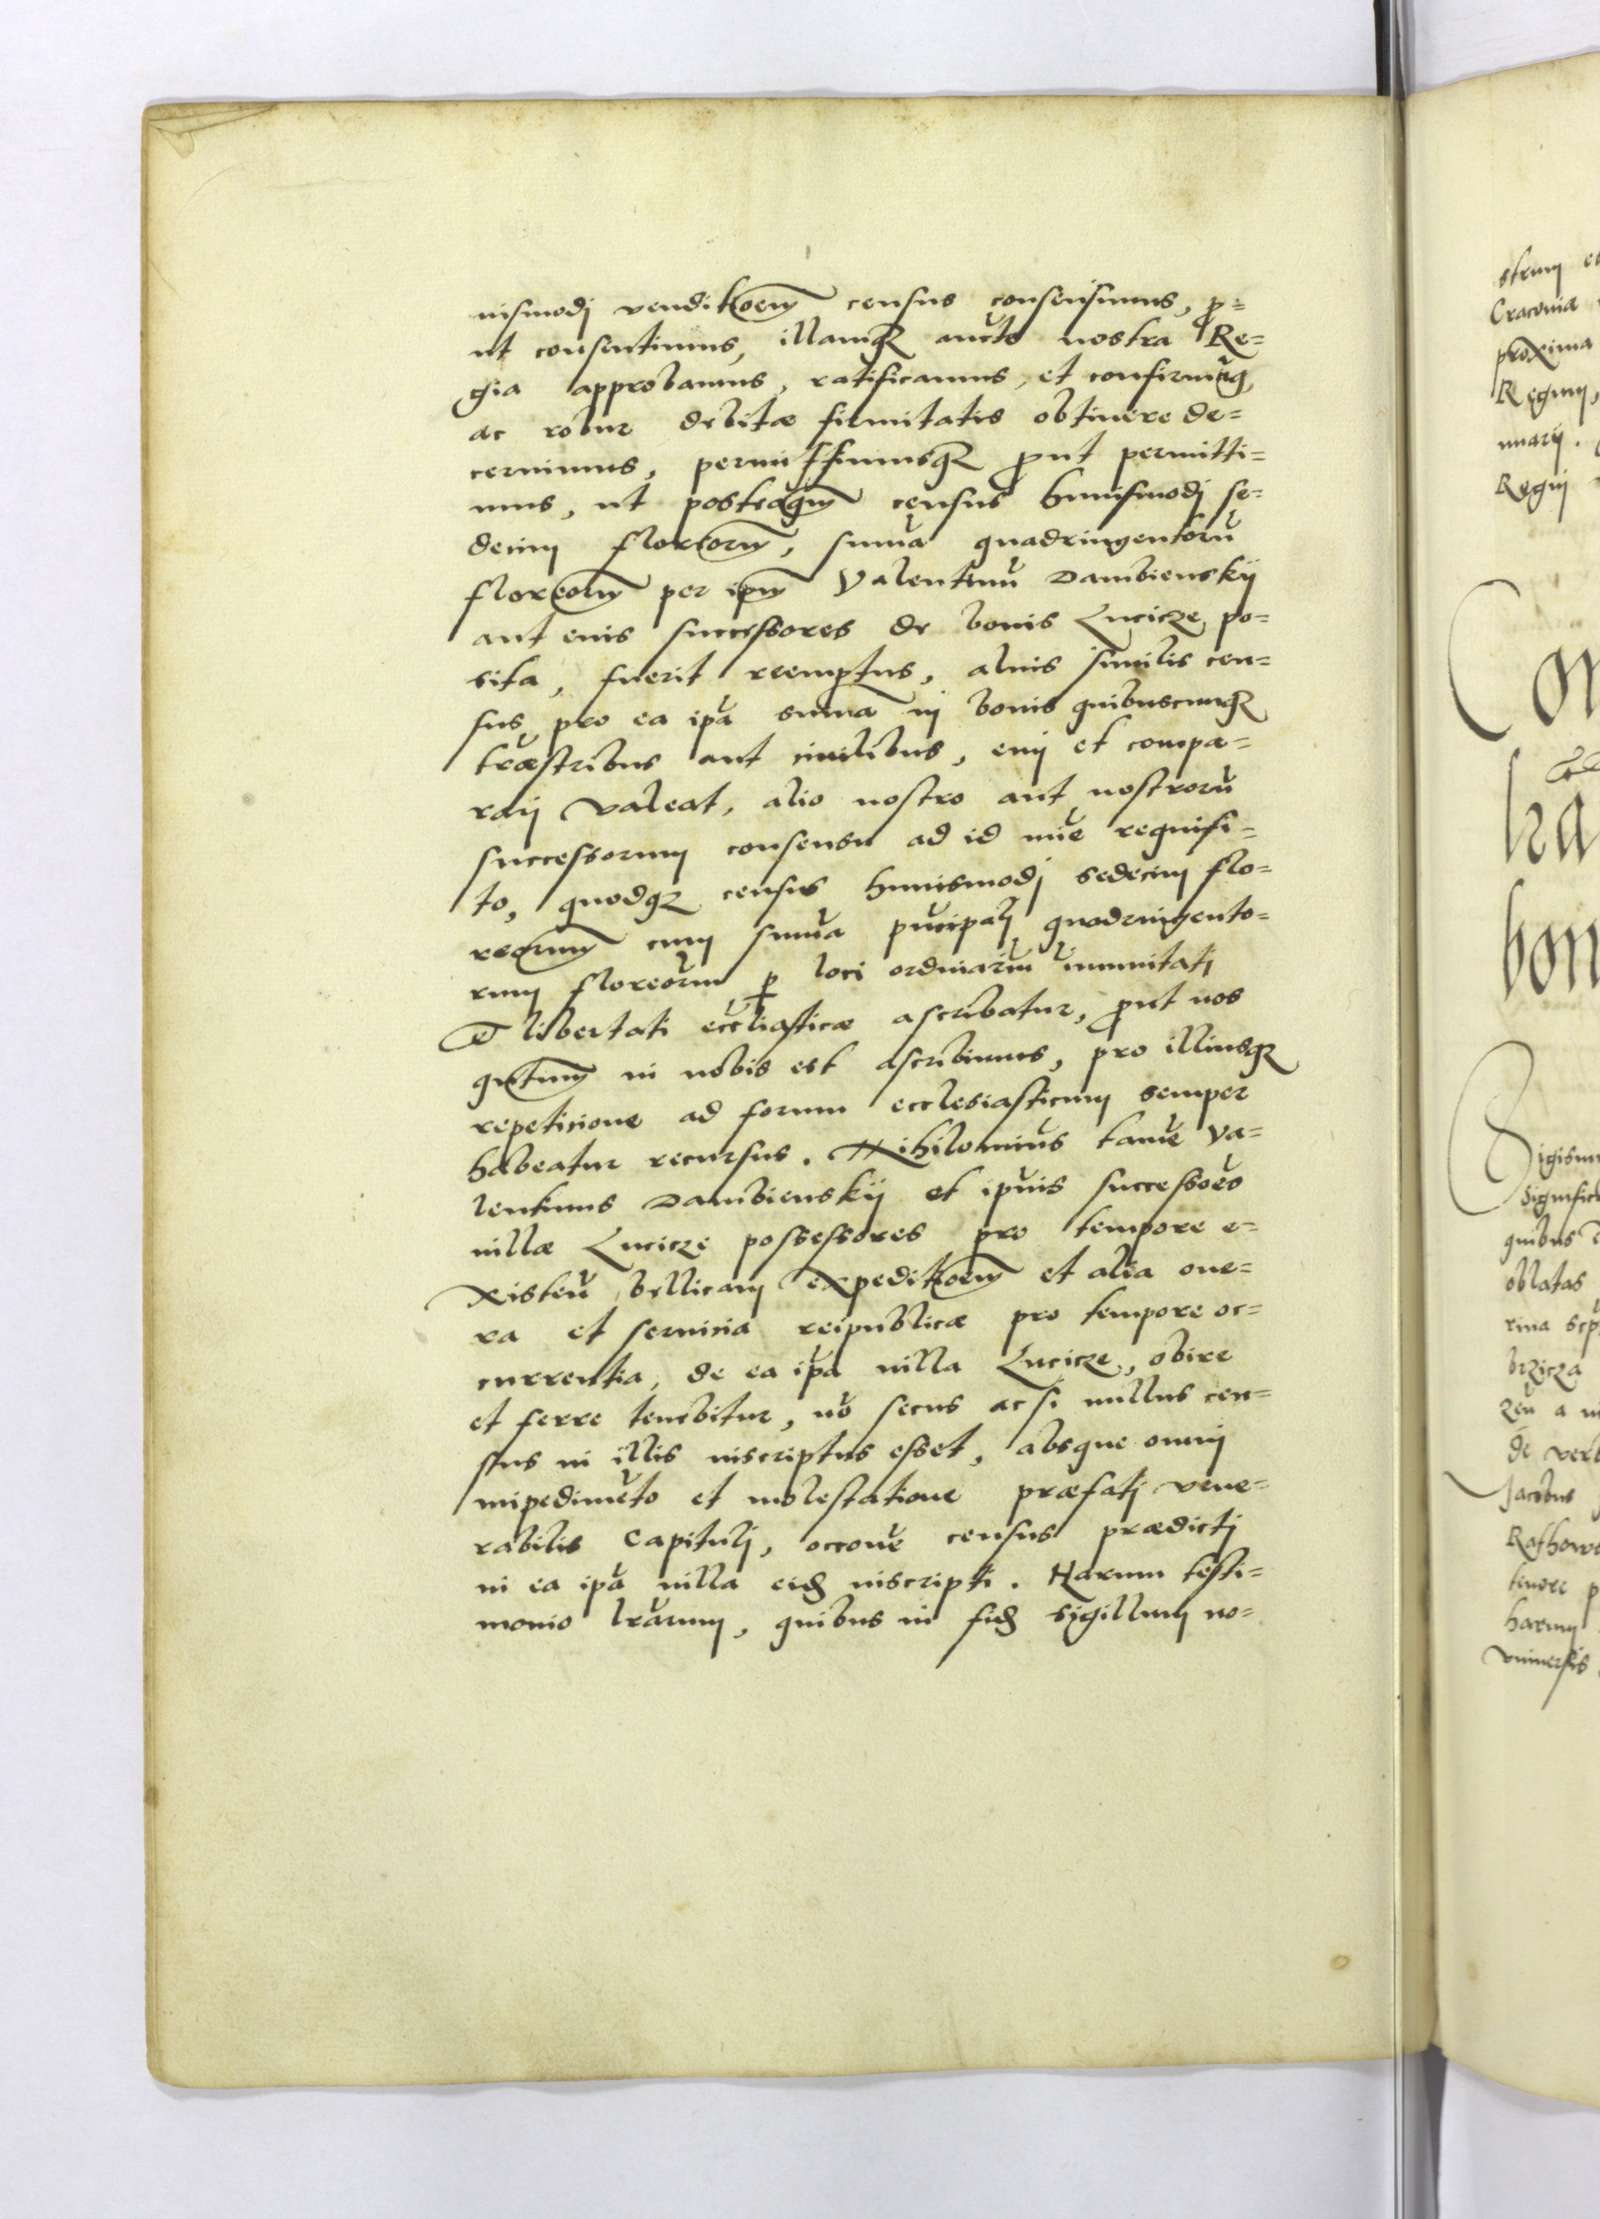 uismodj venditioem census consensimus, pro=
ut consentimus, illamq aucte nostra Re=
gia approbamus, ratificamus, et confirmamus,
ac robur debitæ firmitatis obtinere de=
cernimus, permissimusq prout permitti=
mus, ut posteaqm census huiusmodj se=
decim floreorum, suma quadringentoru
floreorum per ipm Valentinu Dambienskij
aut euis successores de bonis Lucicze po=
sita, fuerit reemptus, alius similis cen=
sus pro ea ipa suma in bonis quibuscunq
træstribus aut ciuilibus, emj et compa=
rarj valeat, alio nostro aut nostroru
successorum consensu ad id mie requisi=
to, quodq census huiusmodj sedecim flo=
reorum cum suma pncipalj quadringento=
rum floreorum p loci ordinarium imunitatj
et libertati eccliasticæ ascribatur, prout nos
qntum in nobis est ascribimus, pro illiusq
repeticione ad forum ecclesiasticum semper
habeatur recursus. Nihilominus tame Va=
lentinus Dambienskij et ipius successores
uillæ Lucicze possessores pro tempore e=
xisten bellicam expeditioem et alia one=
ra et seruicia reipublicæ pro tempore oc=
currentia, de ea ipa uilla Lucicze, obire
et ferre tenebitur, no secus ac si nullus cen=
sus in illis inscriptus esset, absque omnj
impedimeto et molestatione præfatj vene=
rabilis Capitulj, occone census prædictj
in ea ipa uilla eid inscripti. Harum testi=
monio lrarum, quibus in fid sigillum no=
strum
Craconiæ
proxima
Regnj,
nuarij.
Regnj
bon
quibus
oblatas
brzicza
de verb
Jacobus
tenore p
harum
vniuersis